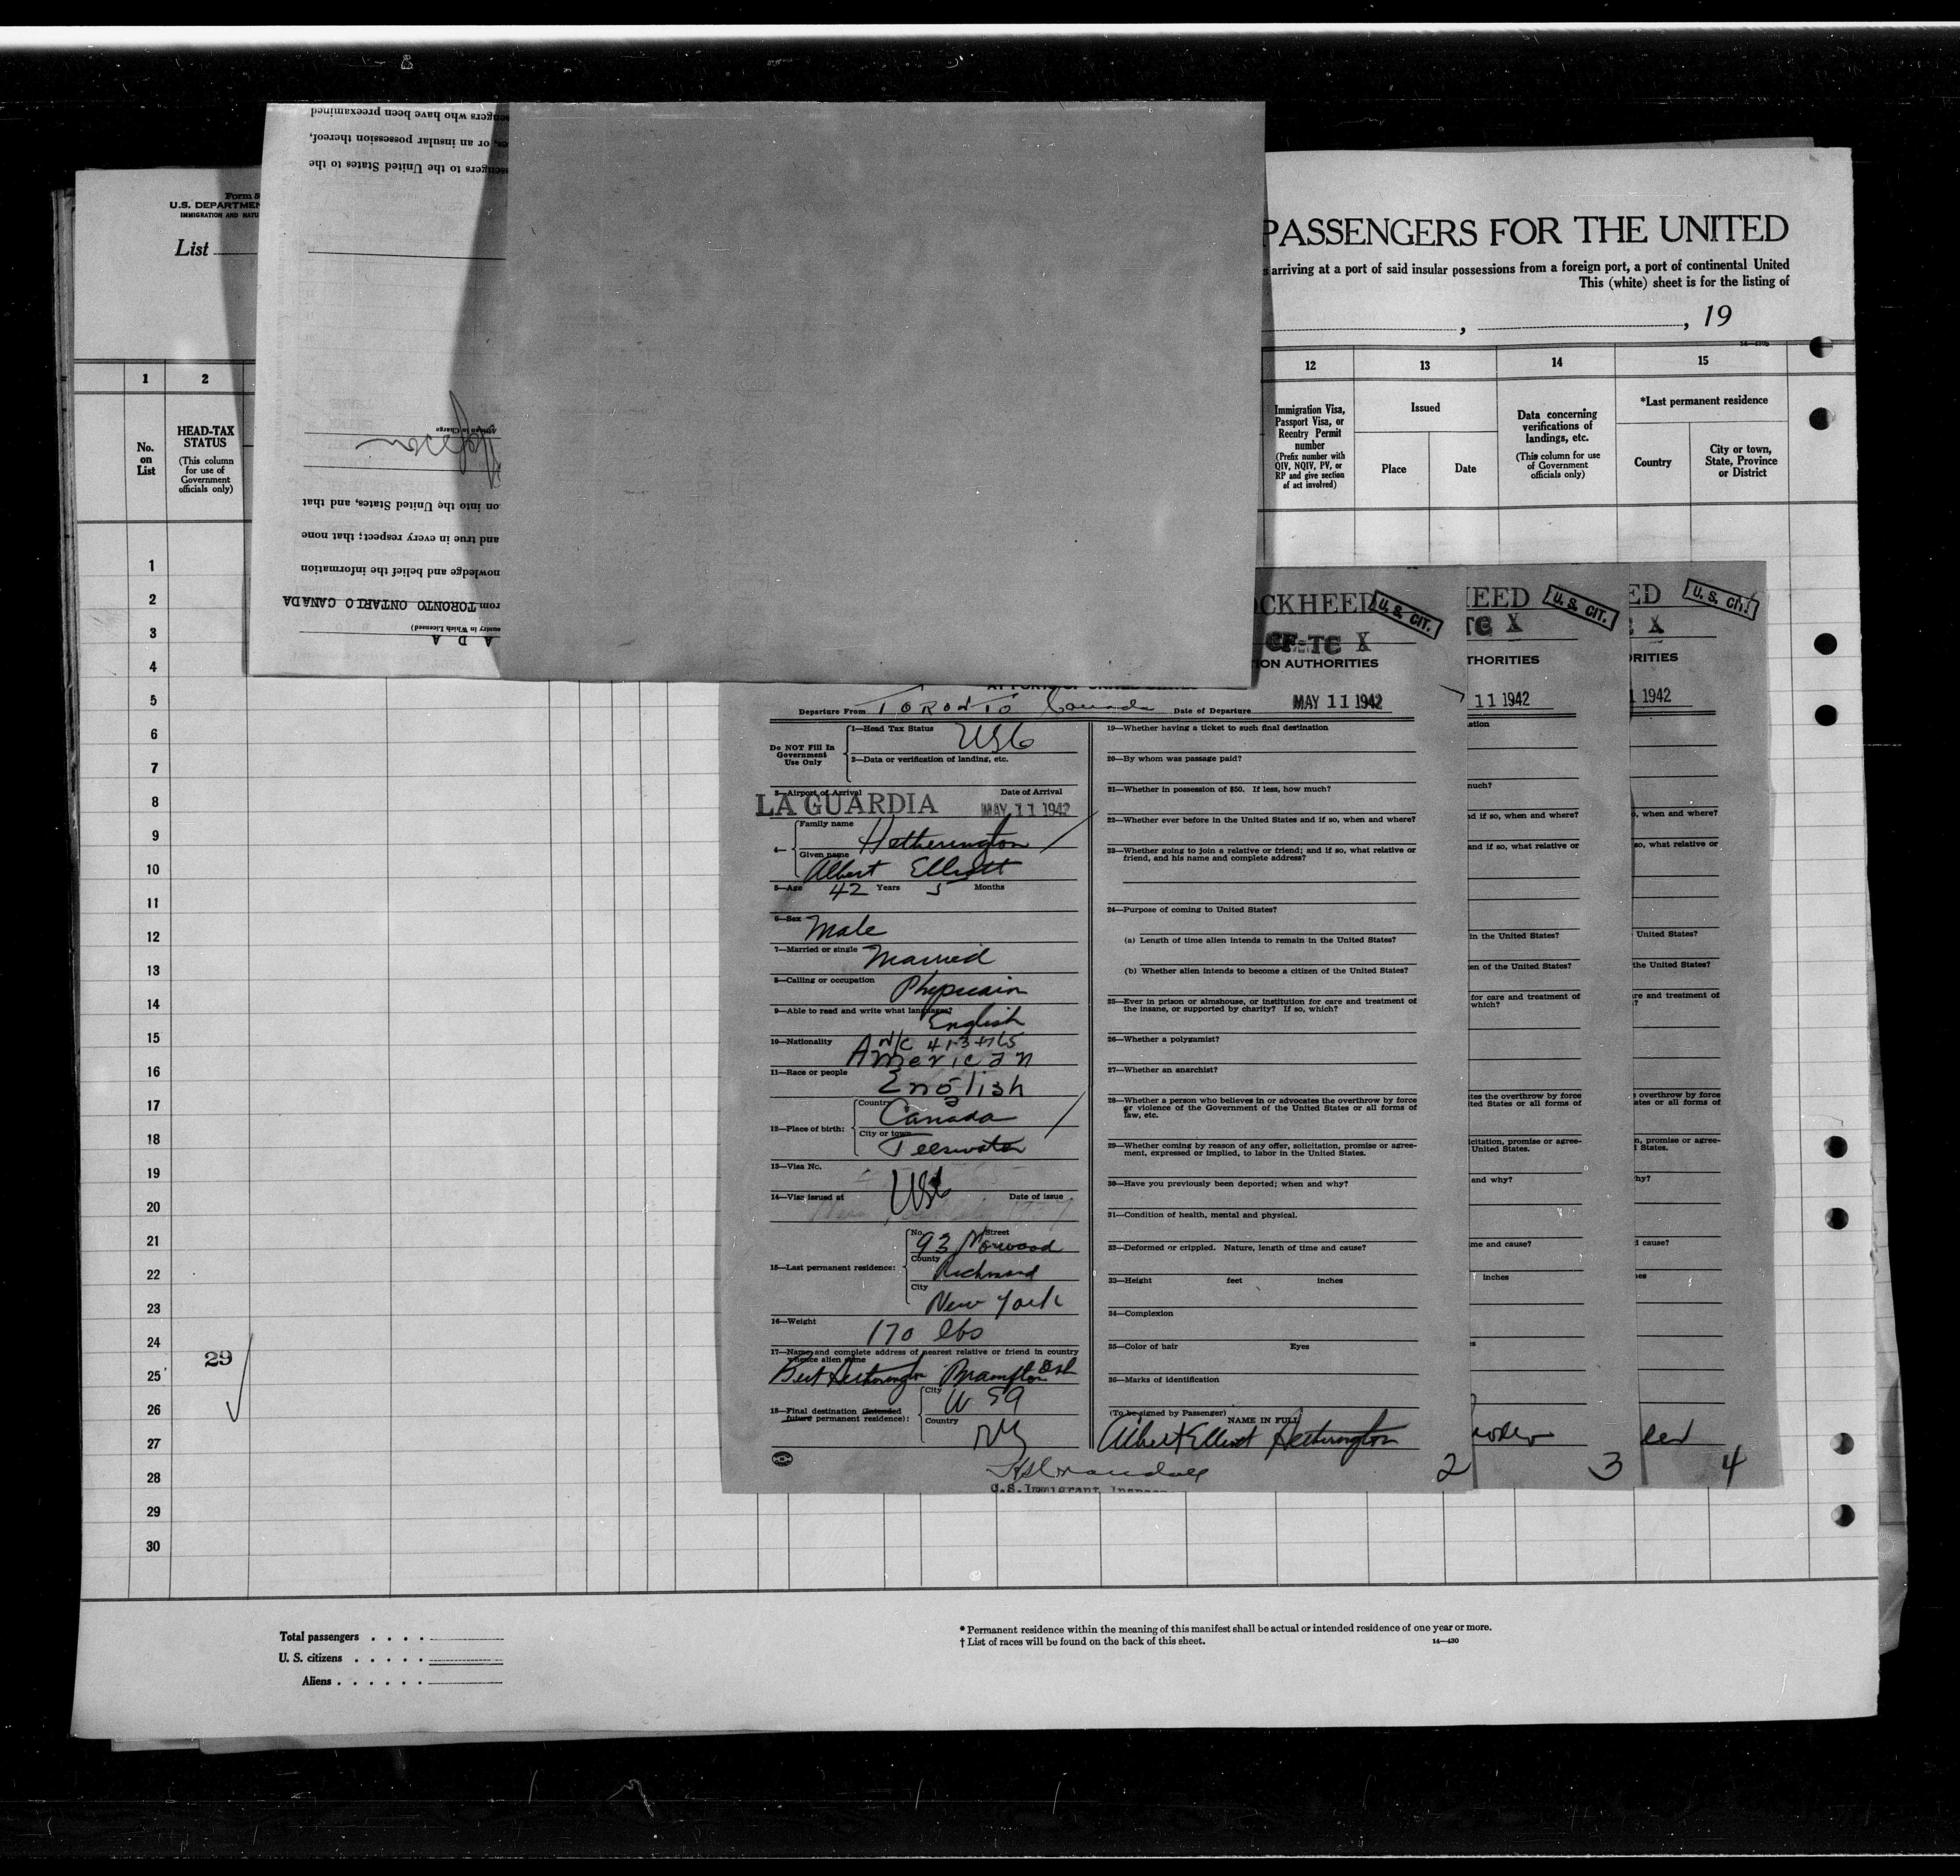 ngers who have been preexamined
es, or an insular possession thereof,
sengers to the United States to the
Airman in Charge
on into the United States, and that
and true in every respect; that none
nowledge and belief the information
rom TORONTO ONTARIO CANADA
ountry in Which Licensed)
A D A
Form 5
U.S. DEPARTMEN
IMMIGRATION AND NATU
List
PASSENGERS FOR THE UNITED
s arriving at a port of said insular possessions from a foreign port, a port of continental United
This (white) sheet is for the listing of
, , 19
1 2 12 13 14 15
No. on List
HEAD-TAX STATUS
(This column for use of Government officials only)
Immigration Visa, Passport Visa, or Reentry Permit number
(Prefix number with QIV, NQIV, PV, or RP and give section of act involved)
Issued
Place Date
Data concerning verifications of landings, etc.
(This column for use of Government officials only)
*Last permanent residence
Country City or town, State, Province or District
1
2
3
4
5
6
7
8
9
10
11
12
13
14
15
16
17
18
19
20
21
22
23
24
25
26
27
28
29
30
29
OCKHEED U. S. CIT.
CF-TC X
ION AUTHORITIES
Departure From TORONTO Canada Date of Departure MAY 11 1942
Do NOT Fill In Government Use Only
1—Head Tax Status USC
2—Data or verification of landing, etc.
3—Airport of Arrival Date of Arrival
LA GUARDIA MAY 11 1942
4— Family name Hetherington
Given name Albert Elliott
5—Age 42 Years 5 Months
6—Sex Male
7—Married or single Married
8—Calling or occupation Physician
9—Able to read and write what languages? English
N/C
10—Nationality American
11—Race or people English
12—Place of birth: Country Canada
City or town Teeswater
13—Visa No.
USC
14—Visa issued at Date of issue
15—Last permanent residence: No. 93 Street Norwood
County Richmond
City New York
16—Weight 170 lbs
17—Name and complete address of nearest relative or friend in country whence alien came
Bert Hetherington Brampton Ont
18—Final destination (Intended future permanent residence): City
Country NY
19—Whether having a ticket to such final destination
20—By whom was passage paid?
21—Whether in possession of $50. If less, how much?
22—Whether ever before in the United States and if so, when and where?
23—Whether going to join a relative or friend; and if so, what relative or
friend, and his name and complete address?
24—Purpose of coming to United States?
(a) Length of time alien intends to remain in the United States?
(b) Whether alien intends to become a citizen of the United States?
25—Ever in prison or almshouse, or institution for care and treatment of
the insane, or supported by charity? If so, which?
26—Whether a polygamist?
27—Whether an anarchist?
28—Whether a person who believes in or advocates the overthrow by force
or violence of the Government of the United States or all forms of
law, etc.
29—Whether coming by reason of any offer, solicitation, promise or agree-
ment, expressed or implied, to labor in the United States.
30—Have you previously been deported; when and why?
31—Condition of health, mental and physical.
32—Deformed or crippled. Nature, length of time and cause?
33—Height feet inches
34—Complexion
35—Color of hair Eyes
36—Marks of identification
(To be signed by Passenger) NAME IN FULL
Albert Elliott Hetherington
2
U.S. Immigrant Inspec
HEED U. S. CIT.
TC X
THORITIES
11 1942
ation
much?
nd if so, when and where?
and if so, what relative or
in the United States?
en of the United States?
for care and treatment of
which?
ates the overthrow by force
ited States or all forms of
icitation, promise or agree-
United States.
and why?
me and cause?
inches
3
ED U. S. CIT.
C X
ORITIES
1 1942
o, when and where?
so, what relative or
United States?
the United States?
are and treatment of
?
overthrow by force
ates or all forms of
n, promise or agree-
States.
hy?
d cause?
hes
4
Total passengers . . . .
U. S. citizens . . . . .
Aliens . . . . . .
* Permanent residence within the meaning of this manifest shall be actual or intended residence of one year or more.
† List of races will be found on the back of this sheet. 14—430